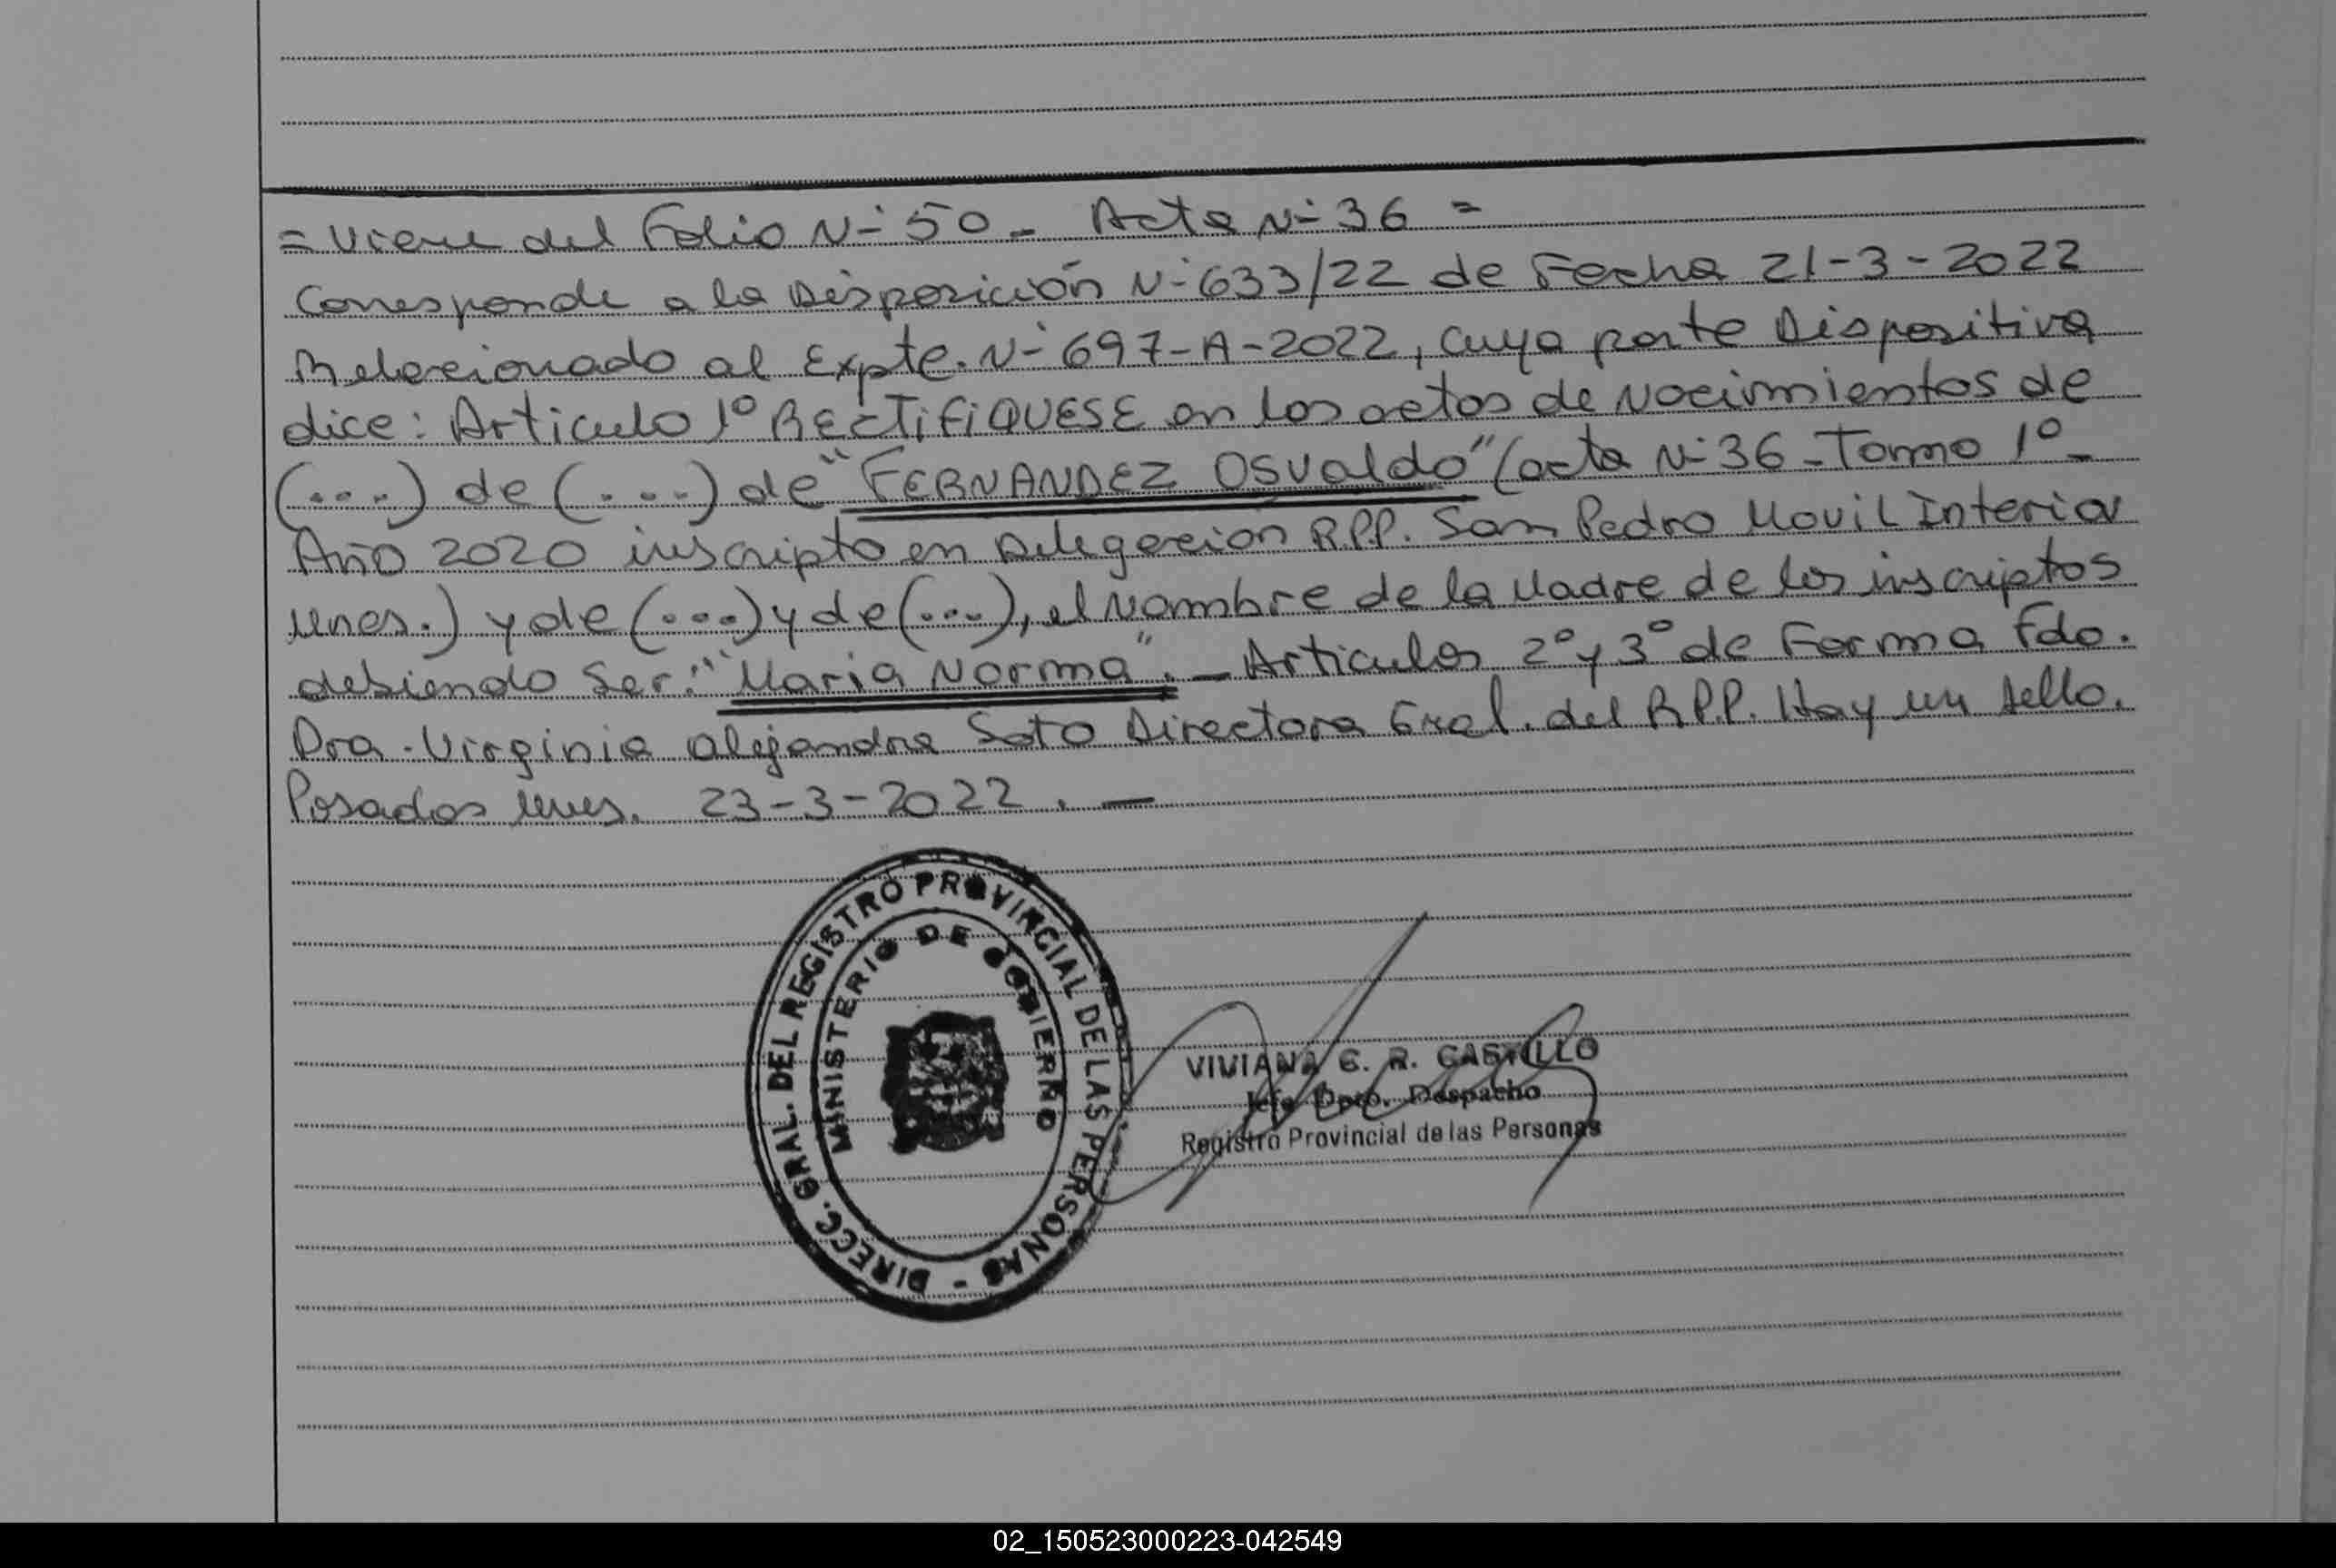 = Viene del Folio N° 50 - Acta N° 36 =
Corresponde a la Disposición N° 633/22 de Fecha 21-3-2022
Relacionado al Expte. N° 697-A-2022, cuya parte Dispositiva
dice: Articulo 1° RECTIFIQUESE en los actas de Nacimientos de
(...) de (...) de "FERNANDEZ OSValdo" (acta N° 36 - Tomo 1° -
Año 2020 inscripto en Delegacion R.P.P. San Pedro Movil Interior
Mnes.) y de (...) y de (...), el Nombre de la Madre de los inscriptos
debiendo Ser: "Maria Norma". - Articulos 2° y 3° de Forma Fdo.
Dra. Virginia Alejandra Soto Directora Gral. del R.P.P. Hay un Sello.
Posadas Mnes. 23-3-2022. -
DIRECC. GRAL. DEL REGISTRO PROVINCIAL DE LAS PERSONAS -
MINISTERIO DE GOBIERNO
VIVIANA G. R. CASTILLO
Jefa Dpto. Despacho
Registro Provincial de las Personas
02_150523000223-042549